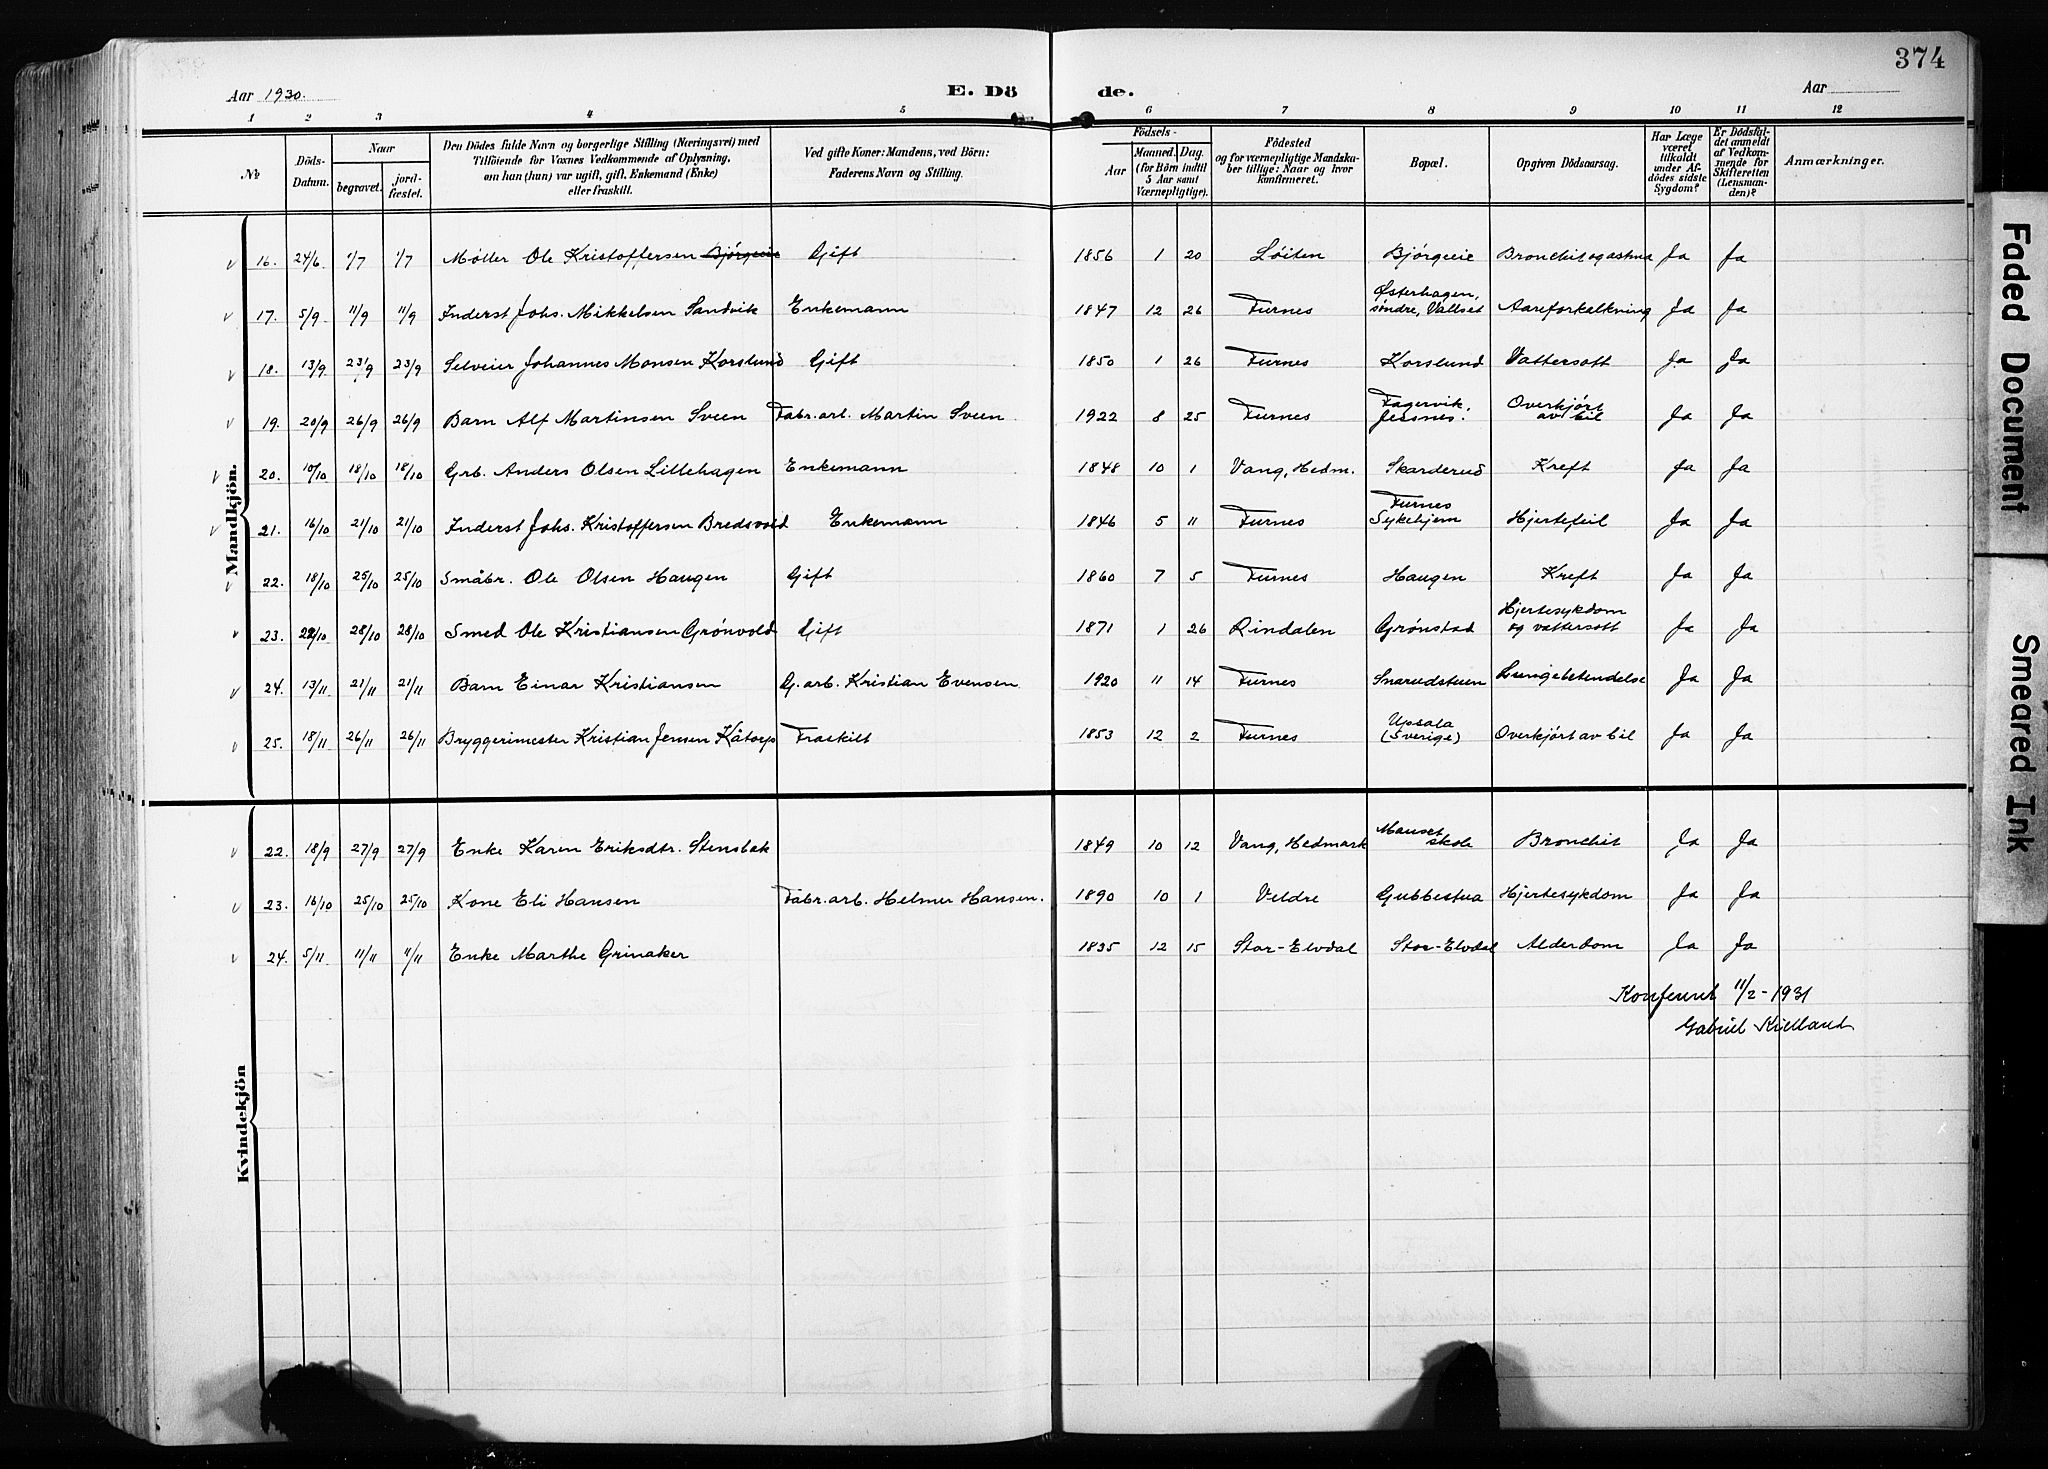 374
Aar 1930.
E. Döde.
Aar
1 2 3 4 5 6 7 8 9 10 11 12
№
Döds-Datum.
Naar
begravet.
jord-fæstet.
Den Dödes fulde Navn og borgerlige Stilling (Næringsvei) med
Tilföiende for Voxnes Vedkommende af Oplysning,
om han (hun) var ugift, gift, Enkemand (Enke)
eller fraskilt.
Ved gifte Koner: Mandens, ved Börn:
Faderens Navn og Stilling.
Födsels-
Aar
Maaned.
Dag.
(for Börn indtil
5 Aar samt
Værnepligtige).
Födested
og for værnepligtige Mandska-
ber tillige: Naar og hvor
konfirmeret.
Bopæl.
Opgiven Dödsaarsag.
Har Læge
været
tilkaldt
under Af-
dödes sidste
Sygdom?
Er Dödsfal-
det anmeldt
af Vedkom-
mende for
Skifteretten
(Lensman-
den)?
Anmærkninger.
Mandkjön.
16. 24/6 1/7 1/7 Møller Ole Kristoffersen Bjørgeie Gift 1856 1 20 Løiten Bjørgeie Bronchit og astma Ja Ja
17. 5/9 11/9 11/9 Inderst Johs. Mikkelsen Sandvik Enkemann 1847 12 26 Furnes Østerhagen, søndre, Vallset Aareforkalkning Ja Ja
18. 13/9 23/9 23/9 Selveier Johannes Monsen Korslund Gift 1850 1 26 Furnes Korslund Vattersott Ja Ja
19. 20/9 26/9 26/9 Barn Alf Martinsen Sveen Fabr.arb. Martin Sveen 1922 8 25 Furnes Fagervik, Jessnes. Overkjørt av bil Ja Ja
20. 10/10 18/10 18/10 Grb. Anders Olsen Lillehagen Enkemann 1848 10 1 Vang, Hedm. Skarderud Kreft Ja Ja
21. 16/10 21/10 21/10 Inderst Johs. Kristoffersen Bredsvold Enkemann 1846 5 11 Furnes Furnes Sykehjem Hjertefeil Ja Ja
22. 18/10 25/10 25/10 Småbr. Ole Olsen Haugen Gift 1860 7 5 Furnes Haugen Kreft Ja Ja
23. 22/10 28/10 28/10 Smed Ole Kristiansen Grønvold Gift 1871 1 26 Rindalen Grønstad Hjertesykdom og vattersott Ja Ja
24. 13/11 21/11 21/11 Barn Einar Kristiansen G.arb. Kristian Evensen 1920 11 14 Furnes Snarudstuen Lungebetendelse Ja Ja
25. 18/11 26/11 26/11 Bryggerimester Kristian Jensen Kåtorp Fraskilt 1853 12 2 Furnes Upsala (Sverige) Overkjørt av bil Ja Ja
Kvindekjön
22. 18/9 27/9 27/9 Enke Karen Eriksdtr. Stensbak 1849 10 12 Vang, Hedmark skole Bronchit Ja Ja
23. 16/10 25/10 25/10 Kone Eli Hansen Fabr.arb. Helmer Hansen. 1890 10 1 Veldre Gubbestua Hjertesykdom Ja Ja
24. 5/11 11/11 11/11 Enke Marthe Grinaker 1835 12 15 Stor-Elvdal Stor-Elvdal Alderdom Ja Ja
Konferert 11/2-1931
Gabriel Kielland
Faded Document
Smeared Ink